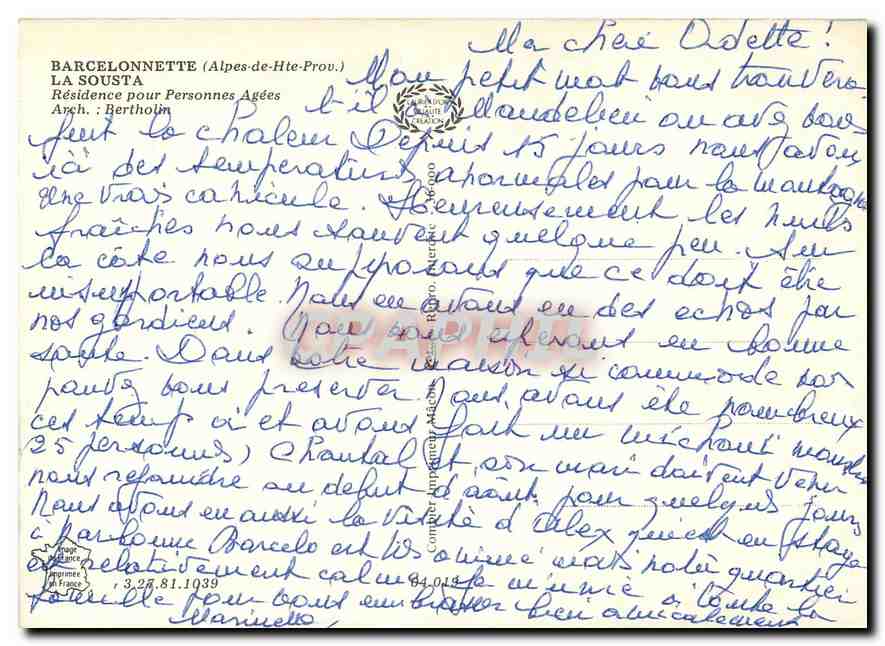 BARCELONNETTE (Alpes-de-Hte-Prov.)
LA SOUSTA
Résidence pour Personnes Agées
Arch. : Bertholin
LAURIER D'OR
QUALITÉ
CREATION
Ma chère Odette !
Mon petit mot vous trouvera
t-il Mandelieu ou avez vous
fuit la chaleur Depuis 15 jours nous avons
ici des temperatures anormales pour la montagne
une vraie canicule. Heureusement les nuits
fraîches nous sauvent quelque peu. Sur
la côte nous supposons que ce doit être
insupportable. Nous en avons eu des echos par
nos gardiens. Nous vous esperons en bonne
sante. Dans votre maison si commode vous
pouvez vous preserver. Nous avons été nombreux
ces temps ci et avons fait un méchoui
25 personnes) Chantal et son mari doivent venir
nous rejoindre au debut d'août pour quelques jours
Nous avons eu aussi la visite d'Alex qui est en stage
à Barcelo est très animé mais notre quartier
est relativement calme. Je m'unie à toute la
famille pour vous embrasser bien amicalement
Combier Imprimeur Mâcon
Image de France
imprimée en France
3.27.81.1039
04 019
CPAPHIL